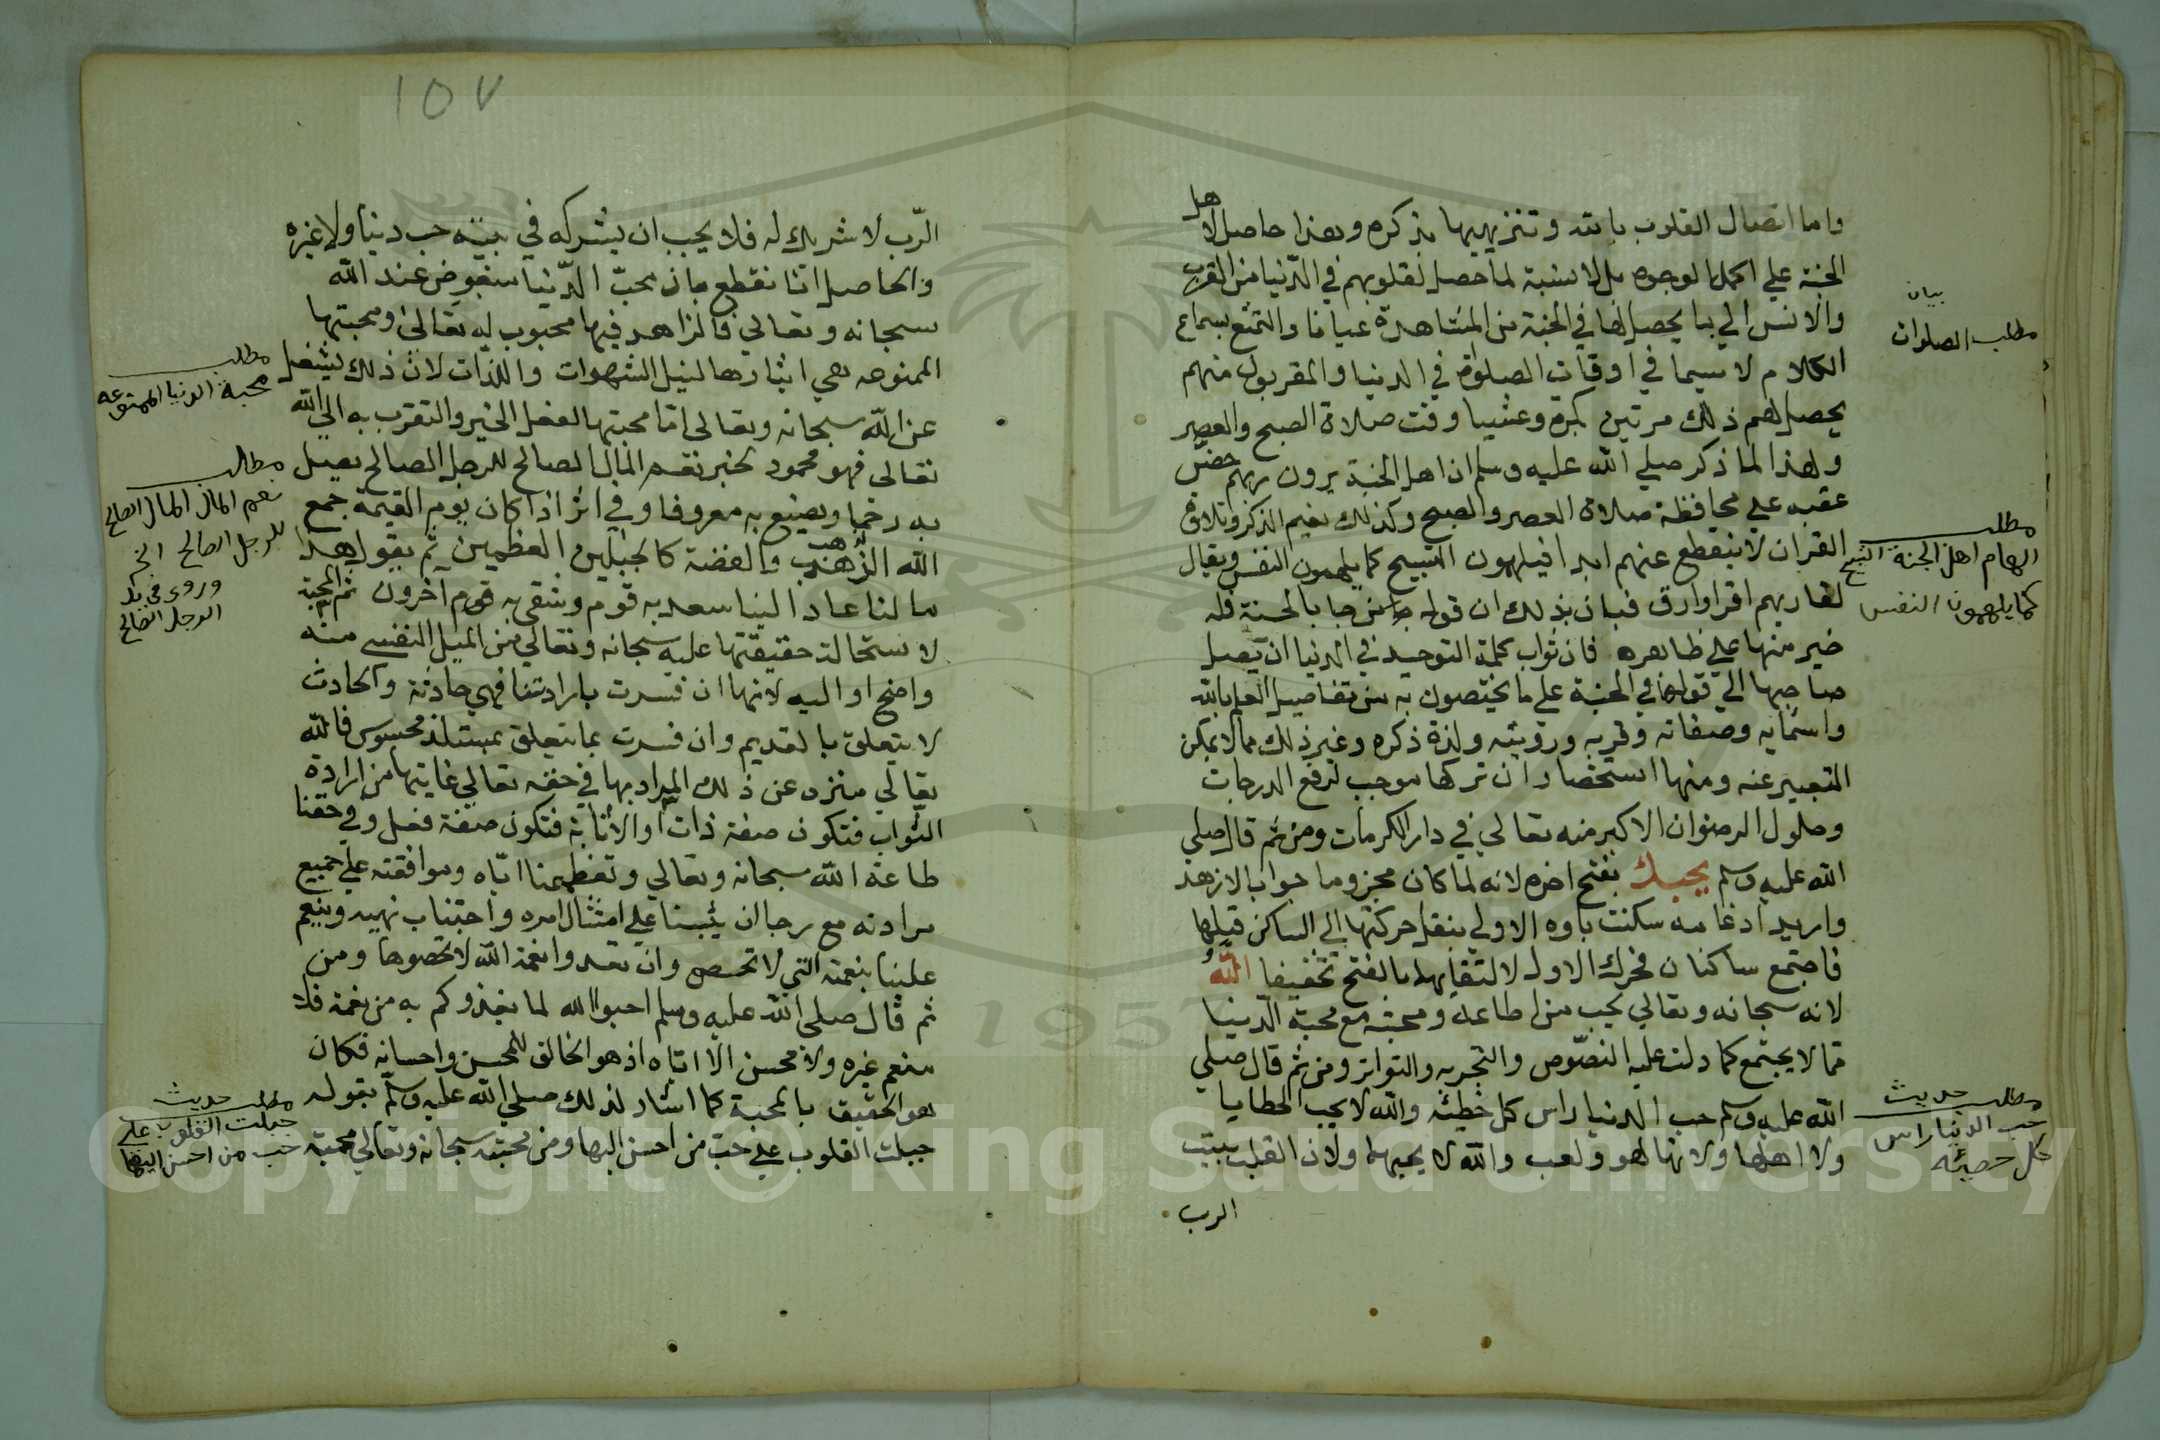 واما اتصال القلوب بالله وتنزيهها بذكره وهذا حاصل لاهل
الجنة علي اكمل الوجوه بل لا نسبة لما حصل لقلوبهم في الدنيا من القرب
والانس الي ما يحصل لها في الجنة من المشاهدة عيانا والتمتع بسماع
الكلام لا سيما في اوقات الصلوة في الدنيا والمقربون منهم
يحصل لهم ذلك مرتين بكرة وعشيا وقت صلاة الصبح والعصر
ولهذا لما ذكر صلي الله عليه وسلم ان اهل الجنة يرون ربهم حض
عقبه علي محافظة صلاة العصر والصبح وكذلك نعيم الذكر وتلاوة
القران لا ينقطع عنهم ابدا فيلهمون التسبيح كما يلهمون النفس ويقال
لقاريهم اقرا وارق فبان بذلك ان قوله من جا بالحسنة فله
خير منها علي ظاهره فان ثواب كلمة التوحيد في الدنيا ان يصل
صاحبها الي قولها في الجنة علي ما يختصون به من تفاصيل العلم بالله
واسمايه وصفاته وقربه ورؤيته ولذة ذكره وغير ذلك مما لا يمكن
التعبير عنه ومنها استحضار ان تركها موجب لرفع الدرجات
وحلول الرضوان الاكبر منه تعالي في دار الكرمات ومن ثم قال صلي
الله عليه وسلم يحبك بفتح اخره لانه لما كان مجزوما جوابا لازهد
واريد ادغامه سكنت باوه الاولي بنقل حركتها الي الساكن قبلها
فاجتمع ساكنان فحرك الاول لالتقايهما بالفتح تخفيفا الله
لانه سبحانه وتعالي يحب من اطاعه ومحبته مع محبة الدنيا
مما لا يجتمع كما دلت عليه النصوص والتجربه والتواتر ومن ثم قال صلي
الله عليه وسلم حب الدنيا راس كل خطيئه والله لا يحب الخطايا
ولا اهلها ولانها لهو ولعب والله لا يحبهما ولان القلب بيت
الرب
بيان
مطلب الصلوات
مطلب
الهام اهل الجنة التسبيح
كما يلهمون النفس
مطلب حديث
حب الدنيا راس
كل خطيئه
١٥٧
الرب لا شريك له فلا يحب ان يشركه في بيته حب دنيا ولا غيره
والحاصل اننا نقطع بان محب الدنيا مبغوض عند الله
سبحانه وتعالي فالزاهد فيها محبوب له تعالي ومحبتها
الممنوعه هي ايثارها لنيل الشهوات واللذات لان ذلك يشغل
عن الله سبحانه وتعالي اما محبتها لفعل الخير والتقرب به الي الله
تعالي فهو محمود لخبر نعم المال الصالح للرجل الصالح يصل
به رحما ويصنع به معروفا وفي اثر اذا كان يوم القيمة جمع
الله الذهب والفضة كالجبلين العظيمين ثم يقول هذا
مالنا عاد الينا سعد به قوم وشقي به قوم اخرون ثم المحبة
لاستحالة حقيقتها عليه سبحانه وتعالي من الميل النفسي منه
واضح او اليه لانها ان فسرت بارادتنا فهي حادثة والحادث
لا يتعلق بالقديم وان فسرت بما يتعلق بمستلذ محسوس فالله
تعالي منزه عن ذلك المراد بها في حقه تعالي غايتها من ارادة
الثواب فتكون صفة ذات او الاثابة فتكون صفة فعل وفي حقنا
طاعة الله سبحانه وتعالي وتعظيمنا اياه وموافقته علي جميع
مراداته مع رجا ان يثبتنا علي امتثال امره واجتناب نهيه وينعم
علينا بنعمته التي لا تحصي وان تعدوا نعمة الله لا تحصوها ومن
ثم قال صلي الله عليه وسلم احبوا الله لما يغذوكم به من نعمة فلا
منعم غيره ولا محسن الا اياه اذ هو الخالق للمحسن واحسانه فكان
هو الحقيق بالمحبة كما اشار لذلك صلي الله عليه وسلم بقوله
جبلت القلوب علي حب من احسن اليها ومن محبته سبحانه وتعالي محبة
مطلب
محبة الدنيا الممنوعه
مطلب
نعم المال المال الصالح
للرجل الصالح الخ
وروي في يد
الرجل الصالح
مطلب حديث
جبلت القلوب علي
حب من احسن اليها
1957
Copyright © King Saud University